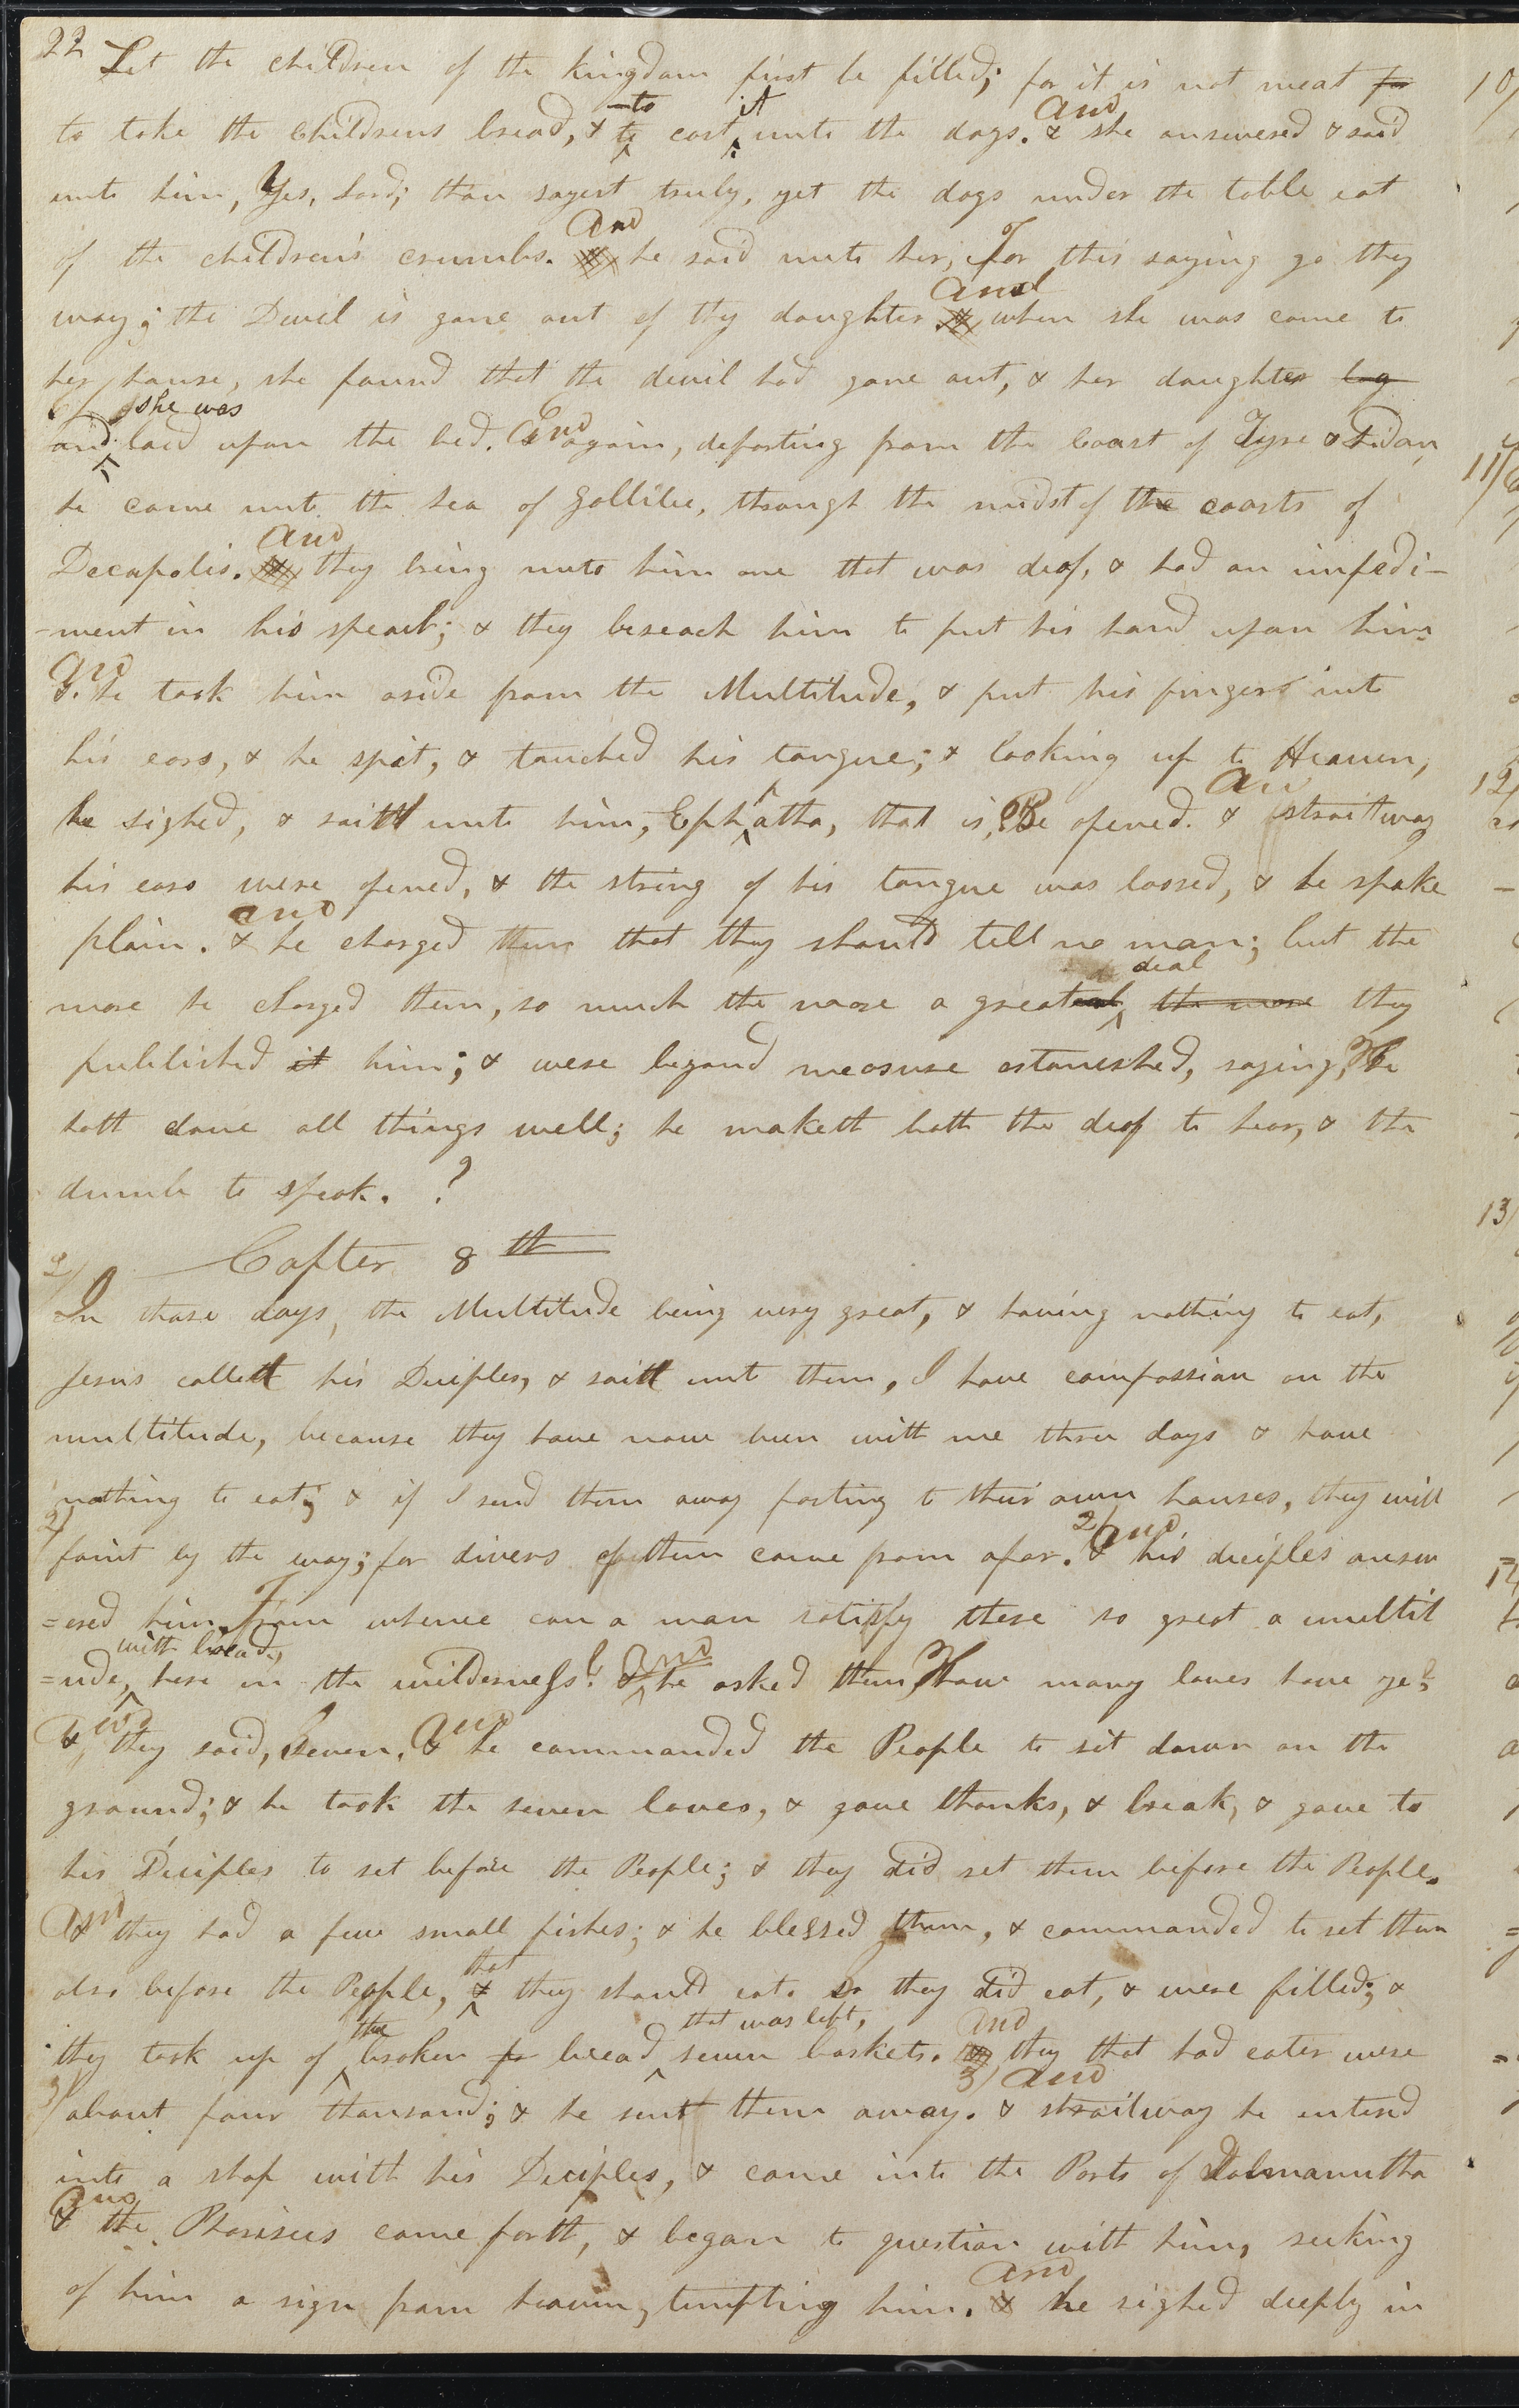 22
Let the children of the kingdom first be filled; for it is not meat for
to take the childrens bread, & to cast it unto the dogs. And & she answered & said
unto him, Yes, Lord; thou sayest truly, yet the dogs under the table eat
of the children's crumbs. And he said unto her, For this saying go thy
way; the Devil is gone out of thy daughter. and when she was come to
her house, she found that the devil had gone out, & her daughter lay
and she was laid upon the bed. And again, departing from the Coast of Tyre & Sidon,
he came unto the Sea of Gallilee, through the midst of the coasts of
Decapolis. And they bring unto him one that was deaf, & had an impedi-
-ment in his speach; & they beseach him to put his hand upon him.
And he took him aside from the Multitude, & put his fingers into
his ears, & he spit, & touched his tongue; & looking up to Heaven,
he sighed, & saith unto him, Ephatha, that is, Be opened. And & straitway
his ears were opened, & the string of his tongue was loosed, & he spake
plain. and & he charged them that they should tell no man; but the
more he charged them, so much the more a great deal the more they
published it him; & were beyond measure astonished, saying, He
hath done all things well; he maketh both the deaf to hear, & the
dumb to speak. ?
1/ Capter 8th
In those days, the Multitude being very great, & having nothing to eat,
Jesus calleth his Deciples, & saith unto them, I have compassion on the
multitude, because they have now been with me three days & have
nothing to eat; & if I send them away fasting to their own houses, they will
2/ faint by the way; for divers of them came from afar. 2/ And & his deciples answ
=ered him, From whence can a man satisfy these so great a multit
=ude, with bread, here in the wilderness? And & he asked them, How many loaves have ye?
And & they said, Seven. And & he commanded the People to sit down on the
ground; & he took the seven loaves, & gave thanks, & break, & gave to
his Deciples to set before the People; & they did set them before the People.
And & they had a few small fishes; & he blessed them, & commanded to set them
also before the People, that & they should eat. so they did eat, & were filled; &
they took up of the broken fr bread that was left, seven baskets. And they that had eaten were
3/ about four thousand; & he sent them away. 3/ And & straitway he entered
into a ship with his Deciples, & came into the Parts of Dalmanutha
And & the Pharisees came forth, & began to question with him, seeking
of him a sign from heaven, tempting him. And & he sighed deeply in
10/
11/
12/
13/